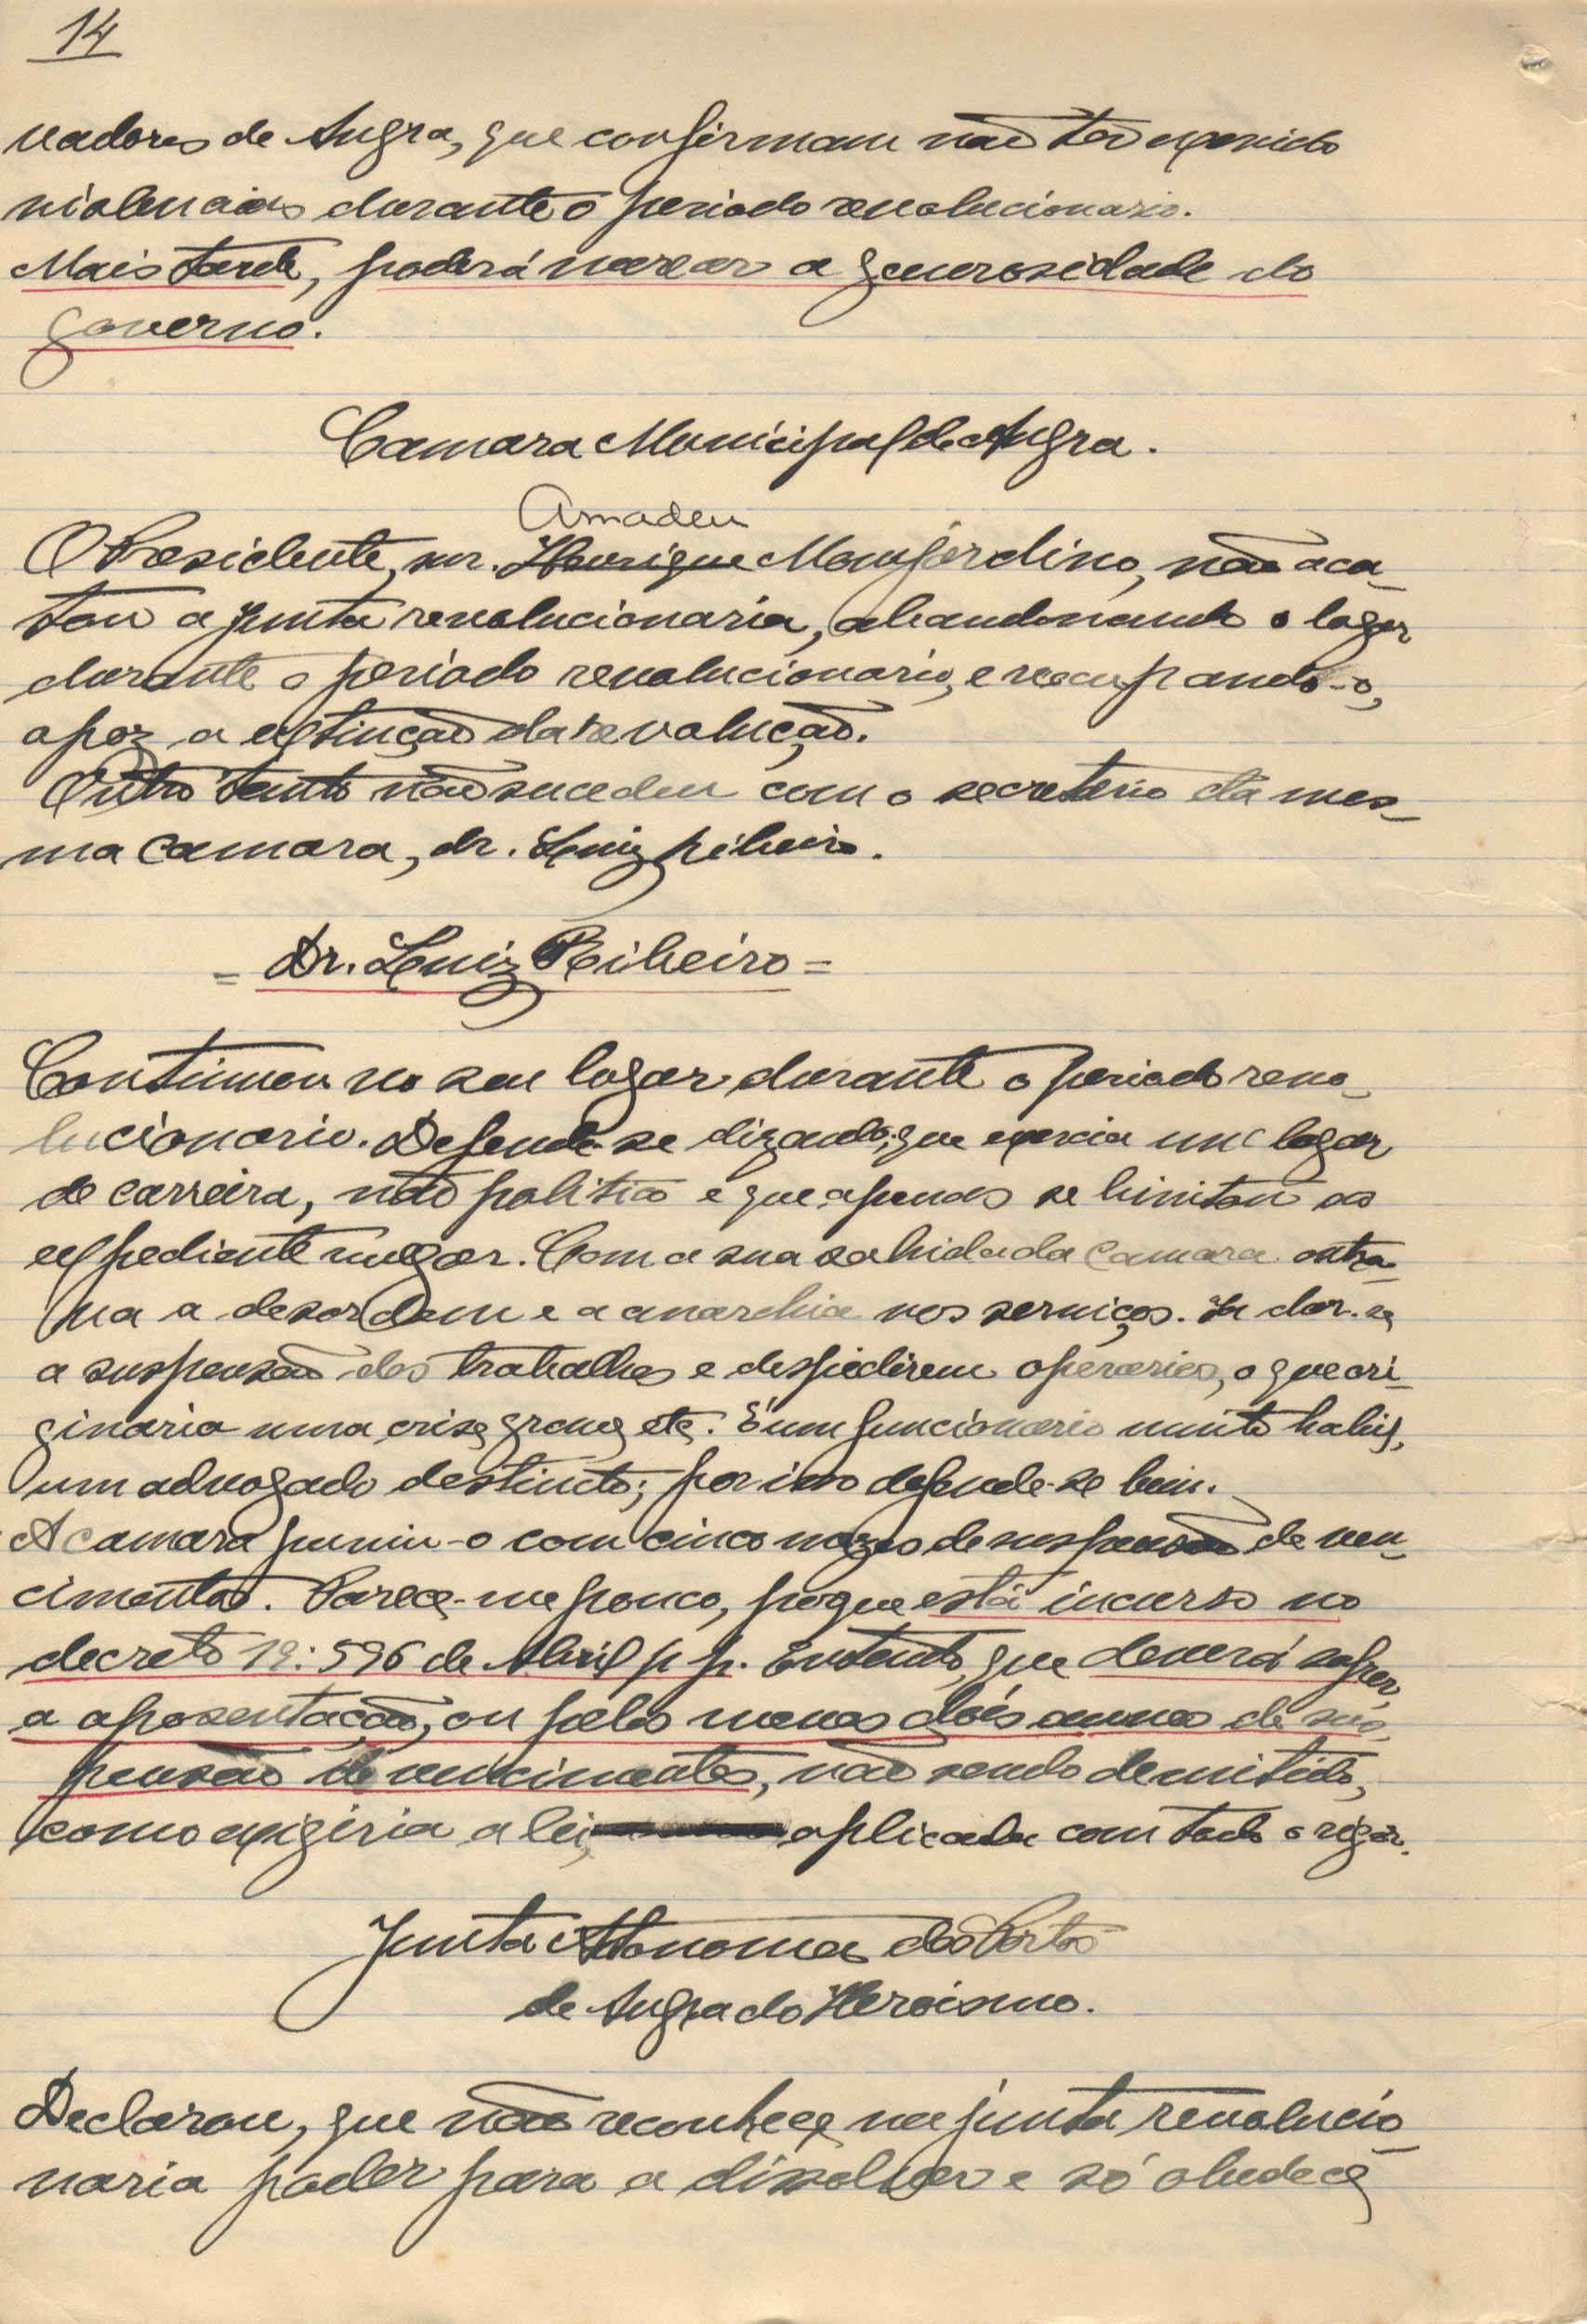 14
vadores de Angra, que confirmam não ter exercido
violencias durante o periodo revolucionario.
Mais tarde, poderá marcar a generosidade do
governo.
Camara Municipal de Angra.
Amadeu
O Presidente, snr. Henrique Monjardino, não aca-
tou a junta revolucionaria, abandonando o logar
durante o periodo revolucionario, e reocupando-o,
apoz a extincção da revolução.
Outro tanto não sucedeu com o secretario da mes-
ma camara, dr. Luiz Ribeiro.
= Dr. Luiz Ribeiro =
Continuou no seu logar durante o periodo revo-
lucionario. Defende-se dizendo, que exercia um logar
de carreira, não politico e que apenas se limitou ao
expediente. Com a sua sahida da camara entra-
va a desordem e a anarchia nos serviços. Ia dar-se
a suspensão dos trabalhos e despedirem operarios, o que ori-
ginaria uma crise grave, etc. É um funcionario muito habil,
um advogado destincto; por isso defende-se bem.
A camara puniu-o com cinco mezes de suspensão de ven-
cimentos. Parece-me pouco, porque está incurso no
decreto 19:596 de Abril p. p. Entendo, que deverá sofrer
a aposentação, ou pelos menos dois annos de sus-
pensão de vencimentos, não sendo demitido,
como exigiria a lei, aplicada com todo o rigor.
Junta Autonoma dos Portos
de Angra do Heroismo.
Declarou, que não reconhece na junta revolucio-
naria poder para a dissolver e só obedece